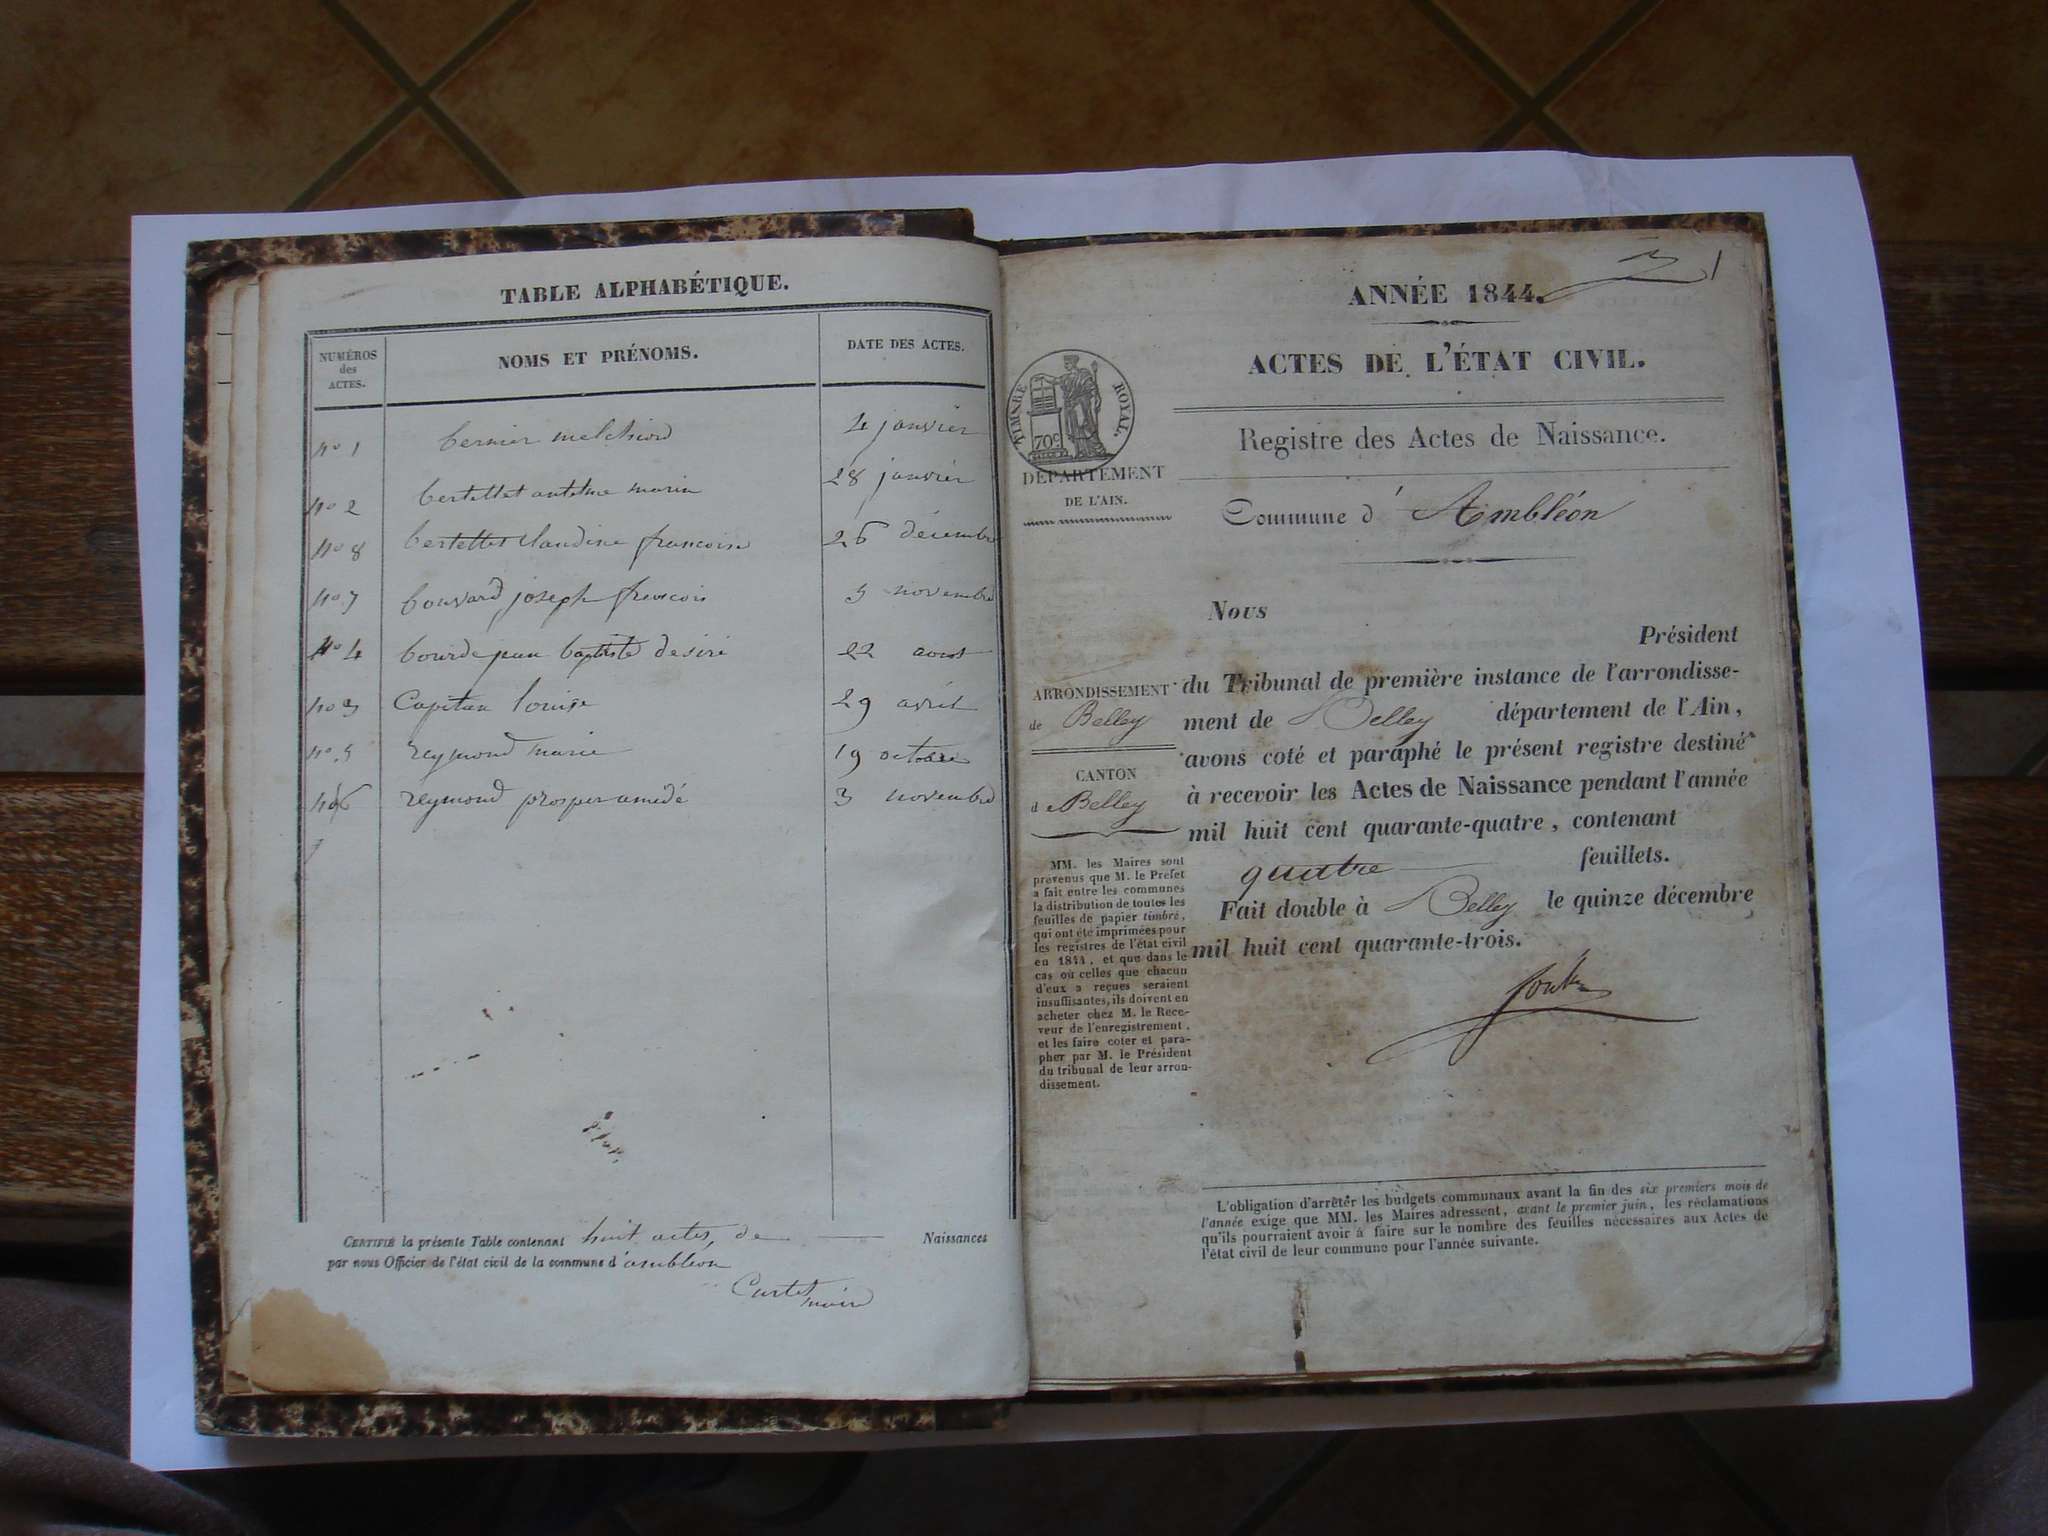 TABLE ALPHABÉTIQUE.
NUMÉROS
des
ACTES.
NOMS ET PRÉNOMS.
DATE DES ACTES.
no 1 bernier melchiord 4 janvier
no 2 bertettet antelme marin 28 janvier
no 8 bertettet claudine francoise 26 décembre
no 7 bouvard joseph francois 5 novembre
no 4 bourde jean baptiste desiré 22 aoust
no 3 Capitan louise 29 avril
no 5 reymond marie 19 octobre
no 6 reymond prosper amedé 3 novembre
CERTIFIÉ la présente Table contenant huit actes, de Naissances
par nous Officier de l'état civil de la commune d'ambléon
Curtet
maire
1
ANNÉE 1844.
ACTES DE L'ÉTAT CIVIL.
TIMBRE ROYAL.
70c
Registre des Actes de Naissance.
DÉPARTEMENT
DE L'AIN.
Commune d' Ambléon
Nous
Président
du Tribunal de première instance de l'arrondisse-
ment de Belley département de l'Ain,
avons coté et paraphé le présent registre destiné
à recevoir les Actes de Naissance pendant l'année
mil huit cent quarante-quatre, contenant
quatre feuillets.
Fait double à Belley le quinze décembre
mil huit cent quarante-trois.
ARRONDISSEMENT
de Belley
CANTON
de Belley
MM. les Maires sont
prévenus que M. le Préfet
a fait entre les communes
la distribution de toutes les
feuilles de papier timbré,
qui ont été imprimées pour
les registres de l'état civil
en 1844, et que dans le
cas où celles que chacun
d'eux a reçues seraient
insuffisantes, ils doivent en
acheter chez M. le Rece-
veur de l'enregistrement,
et les faire coter et para-
pher par M. le Président
du tribunal de leur arron-
dissement.
L'obligation d'arrêter les budgets communaux avant la fin des six premiers mois de
l'année exige que MM. les Maires adressent, avant le premier juin, les réclamations
qu'ils pourraient avoir à faire sur le nombre des feuilles nécessaires aux Actes de
l'état civil de leur commune pour l'année suivante.